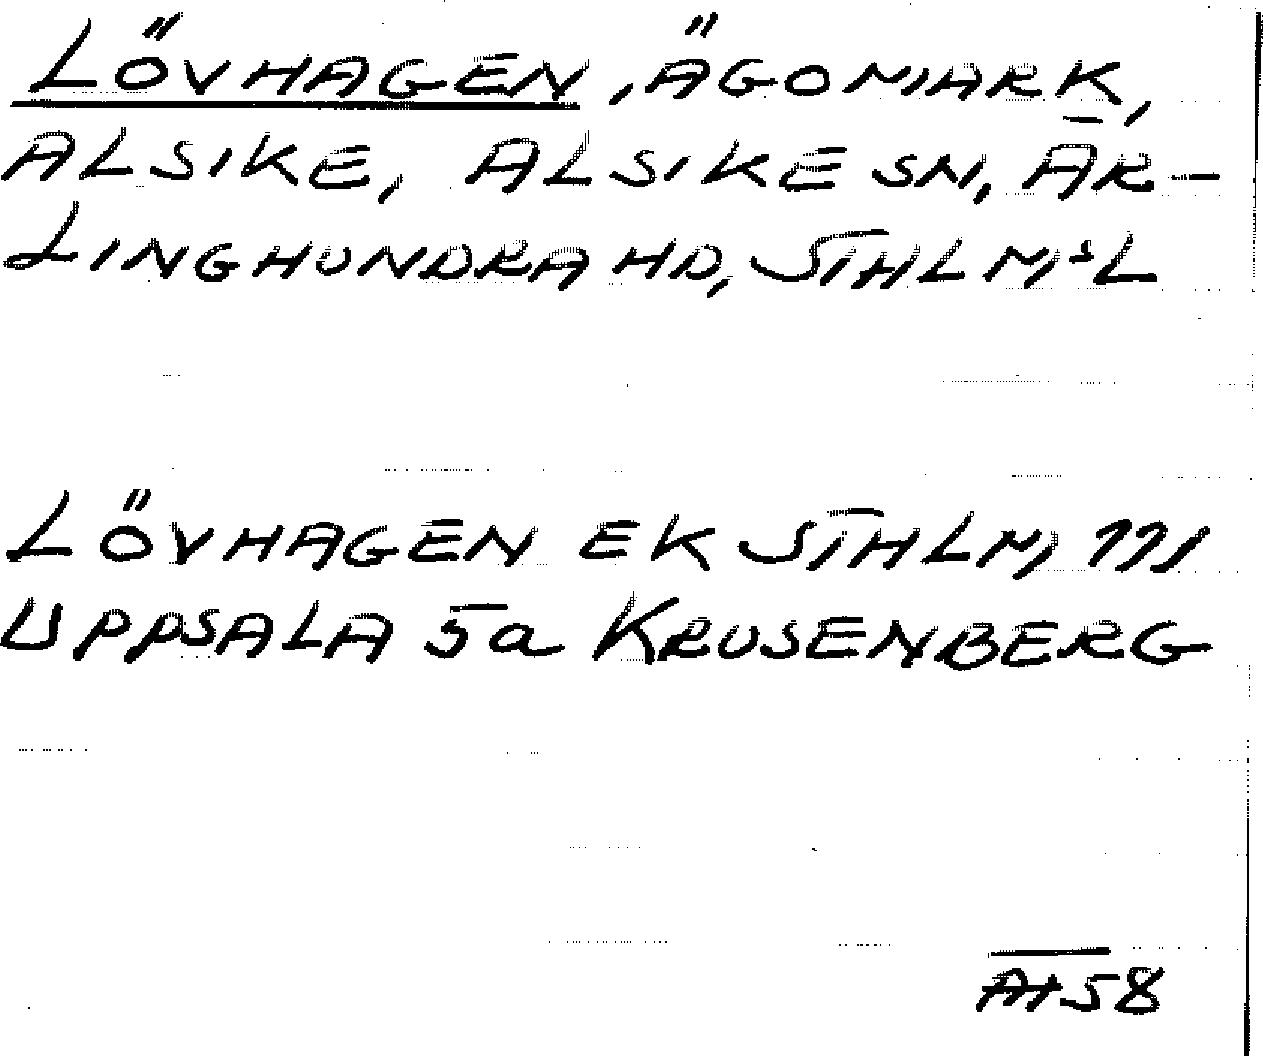 LÖVHAGEN, ÄGOMARK,
ALSIKE, ALSIKE SN, ÄR-
LINGHUNDRA HD, STHLMSL
LÖVHAGEN EK STHLM 111
UPPSALA 5a KRUSENBERG
AH58